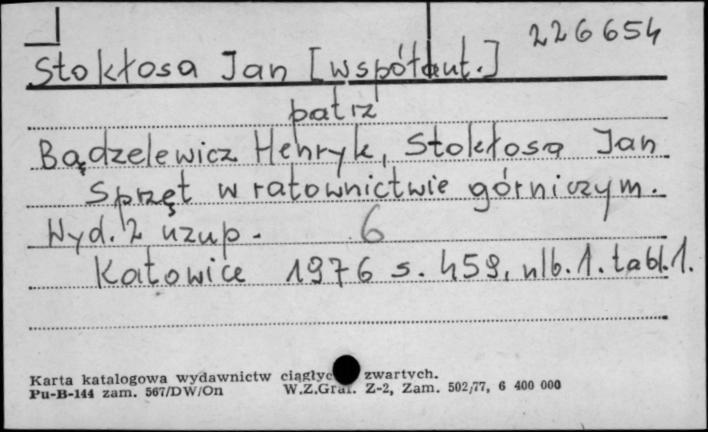 226654
Stokłosa Jan [współaut.]
patrz
Bądzelewicz Henryk, Stokłosa Jan
Sprzęt w ratownictwie górniczym.
Wyd. 2 uzup. 6
Katowice 1976 s. 459, nlb. 1. tabl. 1.
Karta katalogowa wydawnictw ciągłyc zwartych.
Pu-B-144 zam. 567/DW/On W.Z.Graf. Z-2, Zam. 502/77, 6 400 000